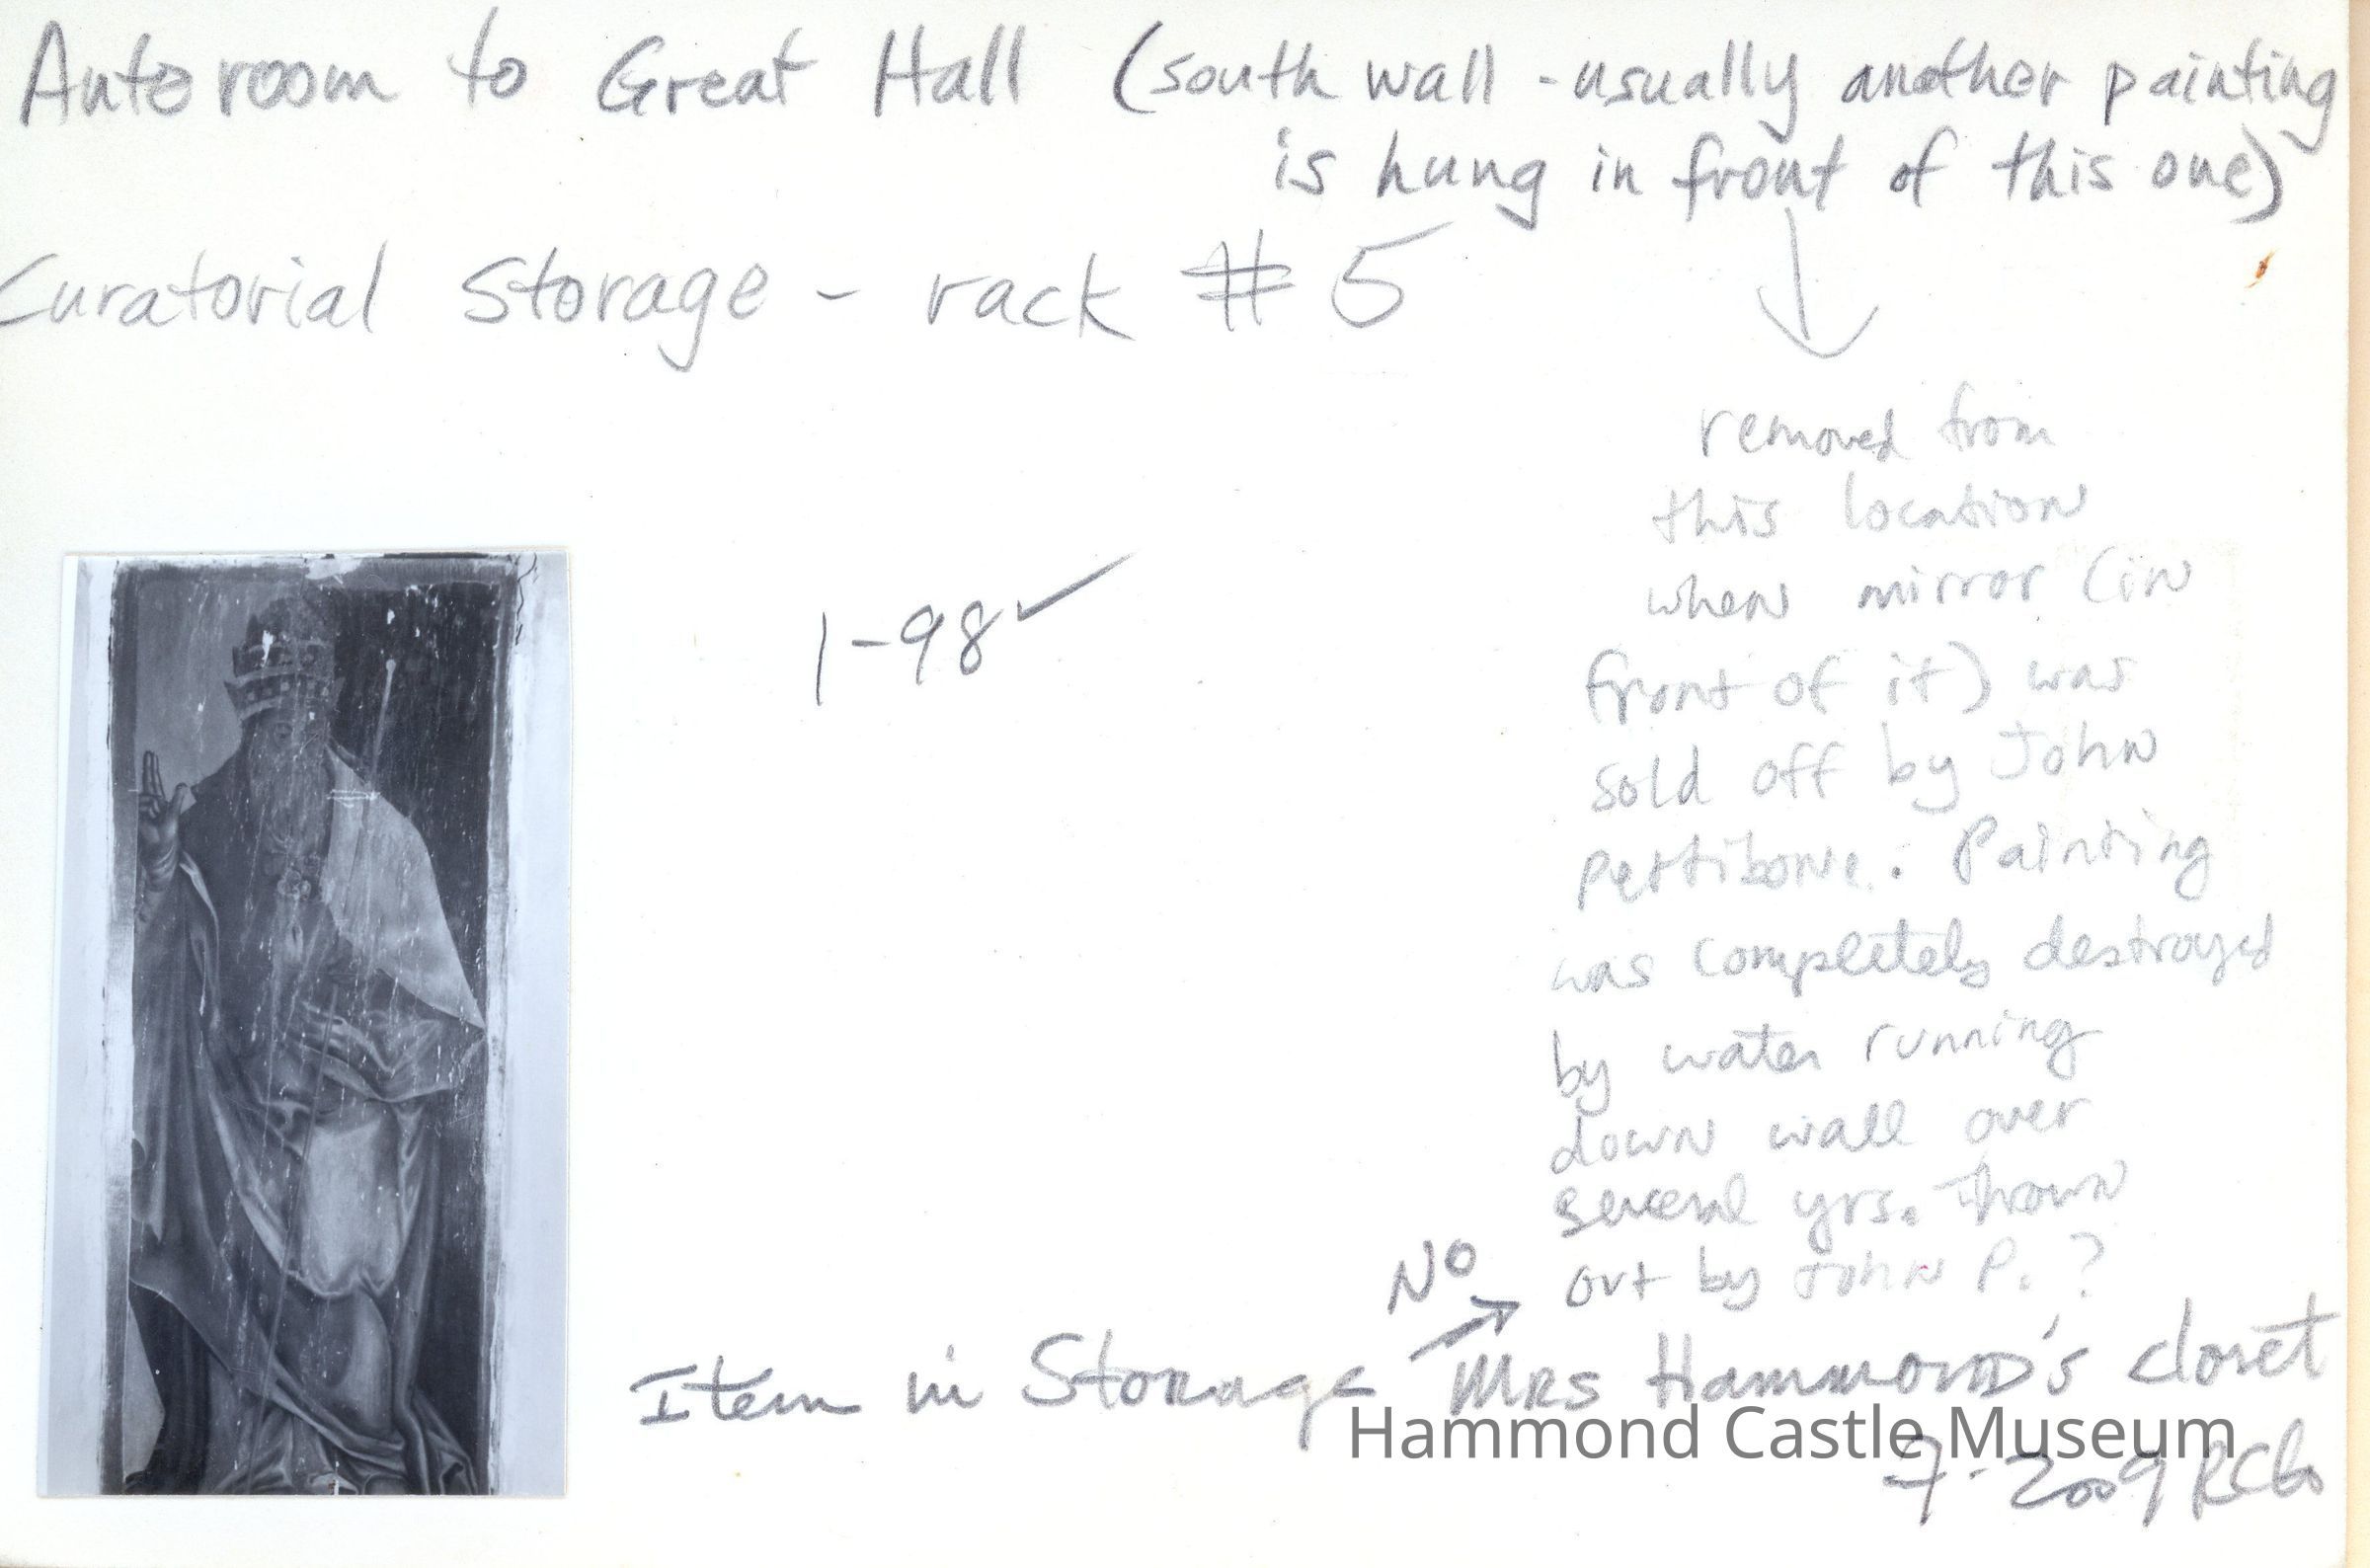 Anteroom to Great Hall (south wall - usually another painting
is hung in front of this one)
Curatorial Storage - rack # 5
removed from
this location
when mirror (in
front of it) was
sold off by John
Pettibone. Painting
was completely destroyed
by water running
down wall over
several yrs. Thrown
out by John P. ?
1-98 ✓
NO
Item in Storage Mrs Hammond's closet
Hammond Castle Museum
7-2009